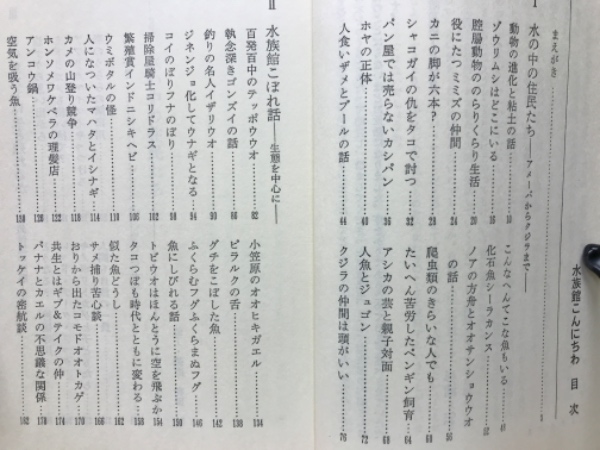 水族館こんにちわ 目次
まえがき……
Ⅰ 水の中の住民たち——アメーバからクジラまで——
動物の進化と粘土の話……10
ゾウリムシはどこにいる……16
腔腸動物ののらりくらり生活……20
役にたつミミズの仲間……24
カニの脚が六本?……28
シャコガイの仇をタコで討つ……32
パン屋では売らないカシパン……36
ホヤの正体……40
人食いザメとプールの話……44
こんなへんてこな魚もいる……48
化石魚シーラカンス……52
ノアの方舟とオオサンショウウオ
の話……56
爬虫類のきらいな人でも……60
たいへん苦労したペンギン飼育……64
アシカの芸と親子対面……68
人魚とジュゴン……72
クジラの仲間は頭がいい……76
Ⅱ 水族館こぼれ話——生態を中心に——
百発百中のテッポウウオ……82
執念深きゴンズイの話……86
釣りの名人イザリウオ……90
ジネンジョ化してウナギとなる……94
コイのぼりフナのぼり……98
掃除屋騎士コリドラス……102
繁殖賞インドニシキヘビ……106
ウミボタルの怪……110
人になついたマハタとイシナギ……114
カメの山登り競争……118
ホンソメワケベラの理髪店……122
アンコウ鍋……126
空気を吸う魚……130
小笠原のオオヒキガエル……134
ピラルクの舌……138
グチをこぼした魚……142
ふくらむフグふくらまぬフグ……146
魚にしびれる話……150
トビウオはほんとうに空を飛ぶか……154
タコつぼも時代とともに変わる……158
似た魚どうし……162
サメ捕り苦心談……166
おりから出たコモドオオトカゲ……170
共生とはギブ&テイクの仲……174
バナナとカエルの不思議な関係……178
トッケイの密航談……182